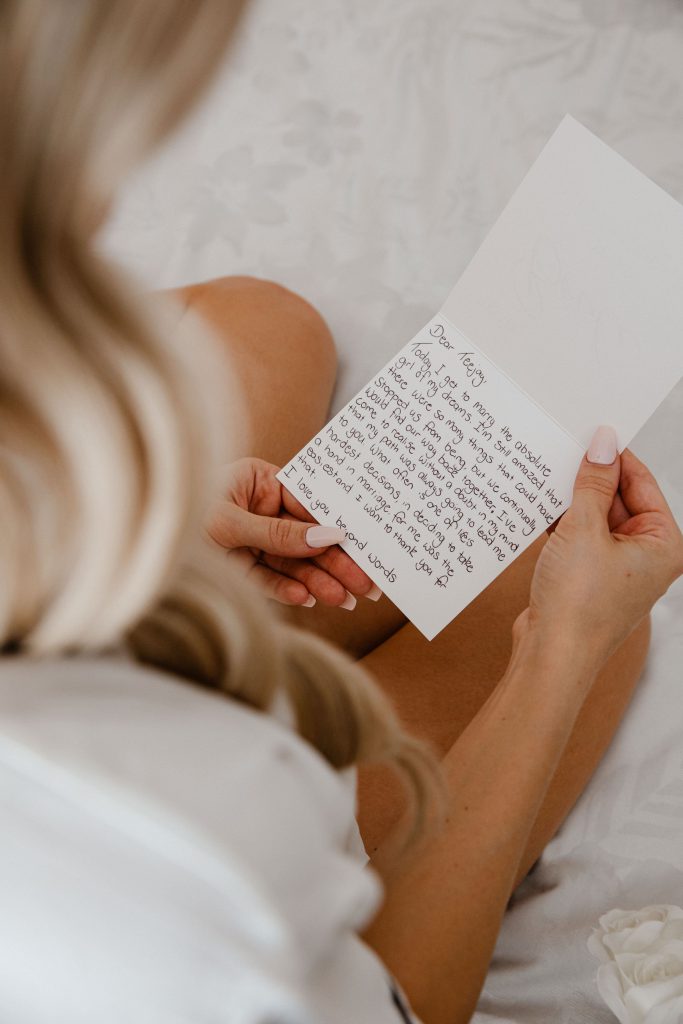 Dear Teejay,
Today I get to marry the absolute
girl of my dreams. I'm still amazed that
there were so many things that could have
stopped us from being, but we continually
would find our way back together. I've
come to realize without a doubt in my mind
that my path was always going to lead me
to you. What often is one of lifes
hardest decisions, in deciding to take
a hand in marriage, for me was the
easiest and I want to thank you for
that.
I love you beyond words